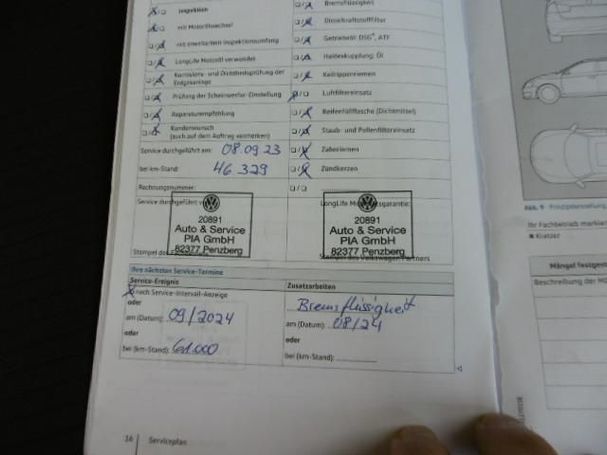 Inspektion
Bremsflüssigkeit
mit Motorölwechsel
Dieselkraftstofffilter
mit erweitertem Inspektionsumfang
Getriebeöl: DSG®, ATF
LongLife Motoröl verwendet
Haldexkupplung: Öl
Korrosions- und Dichtheitsprüfung der
Erdgasanlage
Keilrippenriemen
Prüfung der Scheinwerfer-Einstellung
Luftfiltereinsatz
Reparaturempfehlung
Reifenfüllflasche (Dichtmittel)
Kundenwunsch
(auch auf dem Auftrag vermerken)
Staub- und Pollenfiltereinsatz
Service durchgeführt am: 08 09 23
Zahnriemen
bei km-Stand: 46 329
Zündkerzen
Rechnungsnummer:
Service durchgeführt
LongLife
garantie:
20891
Auto & Service
PIA GmbH
82377 Penzberg
20891
Auto & Service
PIA GmbH
82377 Penzberg
Stempel des
Stempel des Volkswagen Partners
Ihre nächsten Service-Termine
Service-Ereignis
Zusatzarbeiten
nach Service-Intervall-Anzeige
oder
Bremsflüssigkeit
am (Datum): 09/2024
am (Datum): 08/24
oder
oder
bei (km-Stand): 61.000
bei (km-Stand):
16 Serviceplan
Ihr Fachbetrieb markiert
Kratzer
Mängel festge
Beschreibung der M